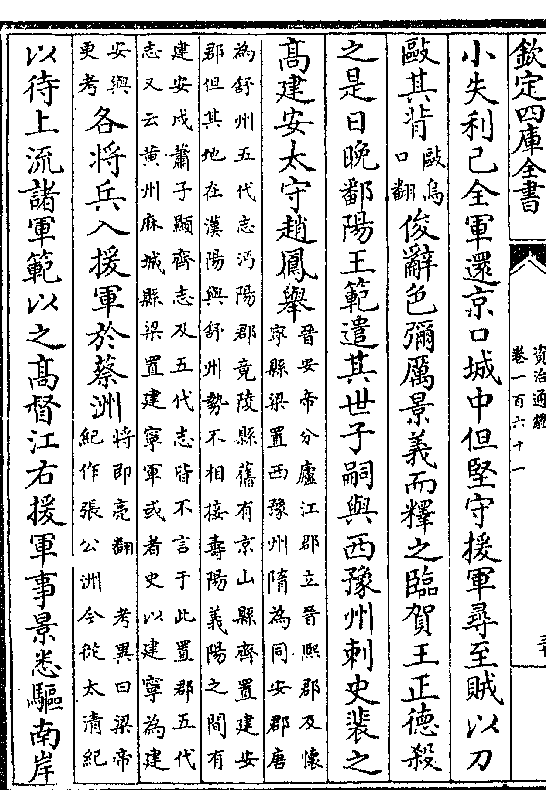 欽定四庫全書
資治通鑑
卷一百六十一
小失利已全軍還京口城中但堅守援軍尋至賊以刀
敺其背敺烏口翻俊辭色彌厲景義而釋之臨賀王正德殺
之是日晚鄱陽王範遣其世子嗣與西豫州刺史裴之
高建安太守趙鳳舉晉安帝分廬江郡立晉熙郡及懷寧縣梁置西豫州隋為同安郡唐
為舒州五代志沔陽郡竟陵縣舊有京山縣齊置建安郡但其地在漢陽與舒州勢不相接壽陽義陽之間有
建安戍蕭子顯齊志及五代志皆不言于此置郡五代志又云黄州麻城縣梁置建寧軍或者史以建寧為建
安與更考各將兵入援軍於蔡洲將即亮翻考異曰梁帝紀作張公洲今從太清紀
以待上流諸軍範以之高督江右援軍事景悉驅南岸